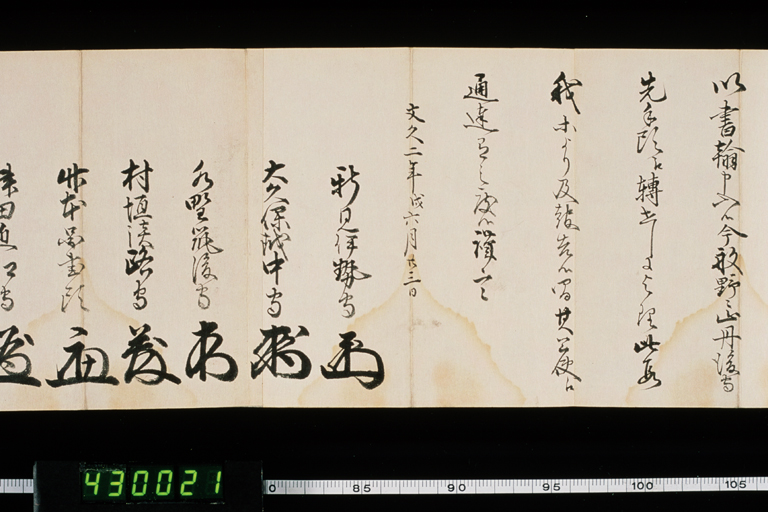 以書翰申入候今般野々山丹後守
先手頭江轉せしより命を此段
我等より及報告候間其公使江
通達有之度候謹言
文久二年戌六月廿三日
新見伊勢守
大久保越中守
水野筑後守
村垣淡路守
竹本図書頭
津田近江守
430021
85
90
95
100
105